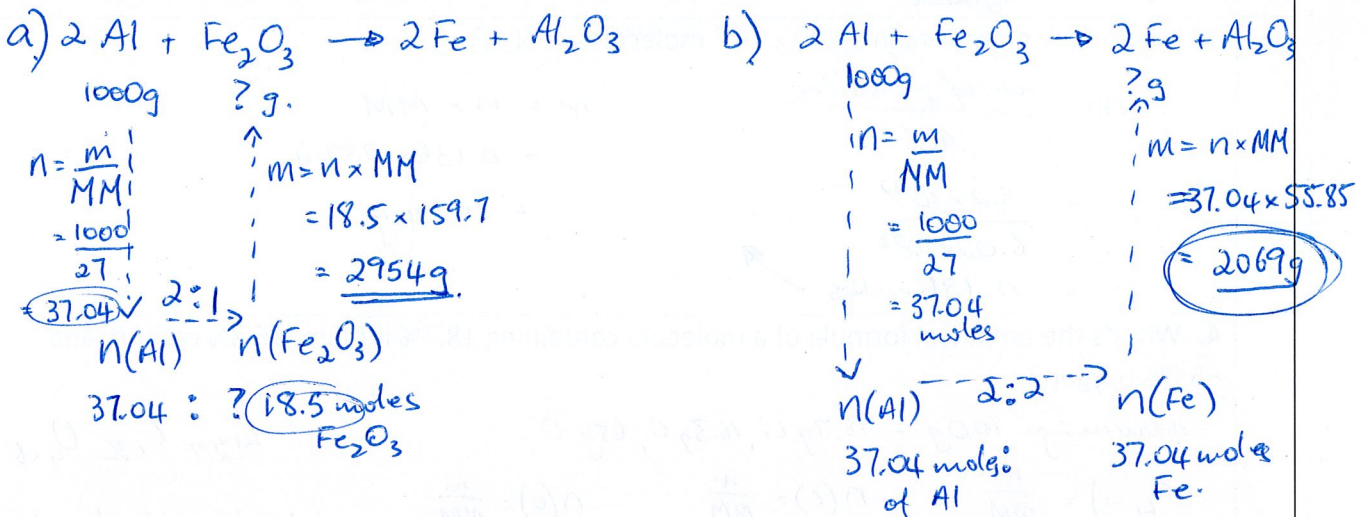 a) 2 Al + Fe₂O₃ → 2 Fe + Al₂O₃
1000g ? g.
n = m/MM
= 1000/27
= 37.04
m = n × MM
= 18.5 × 159.7
= 2954g.
2:1
n(Al) n(Fe₂O₃)
37.04 : ? 18.5 moles
Fe₂O₃
b) 2 Al + Fe₂O₃ → 2 Fe + Al₂O₃
1000g ? g
n = m/MM
= 1000/27
= 37.04
moles
m = n × MM
= 37.04 × 55.85
= 2069g
n(Al) 2:2 n(Fe)
37.04 moles : 37.04 moles
of Al Fe.